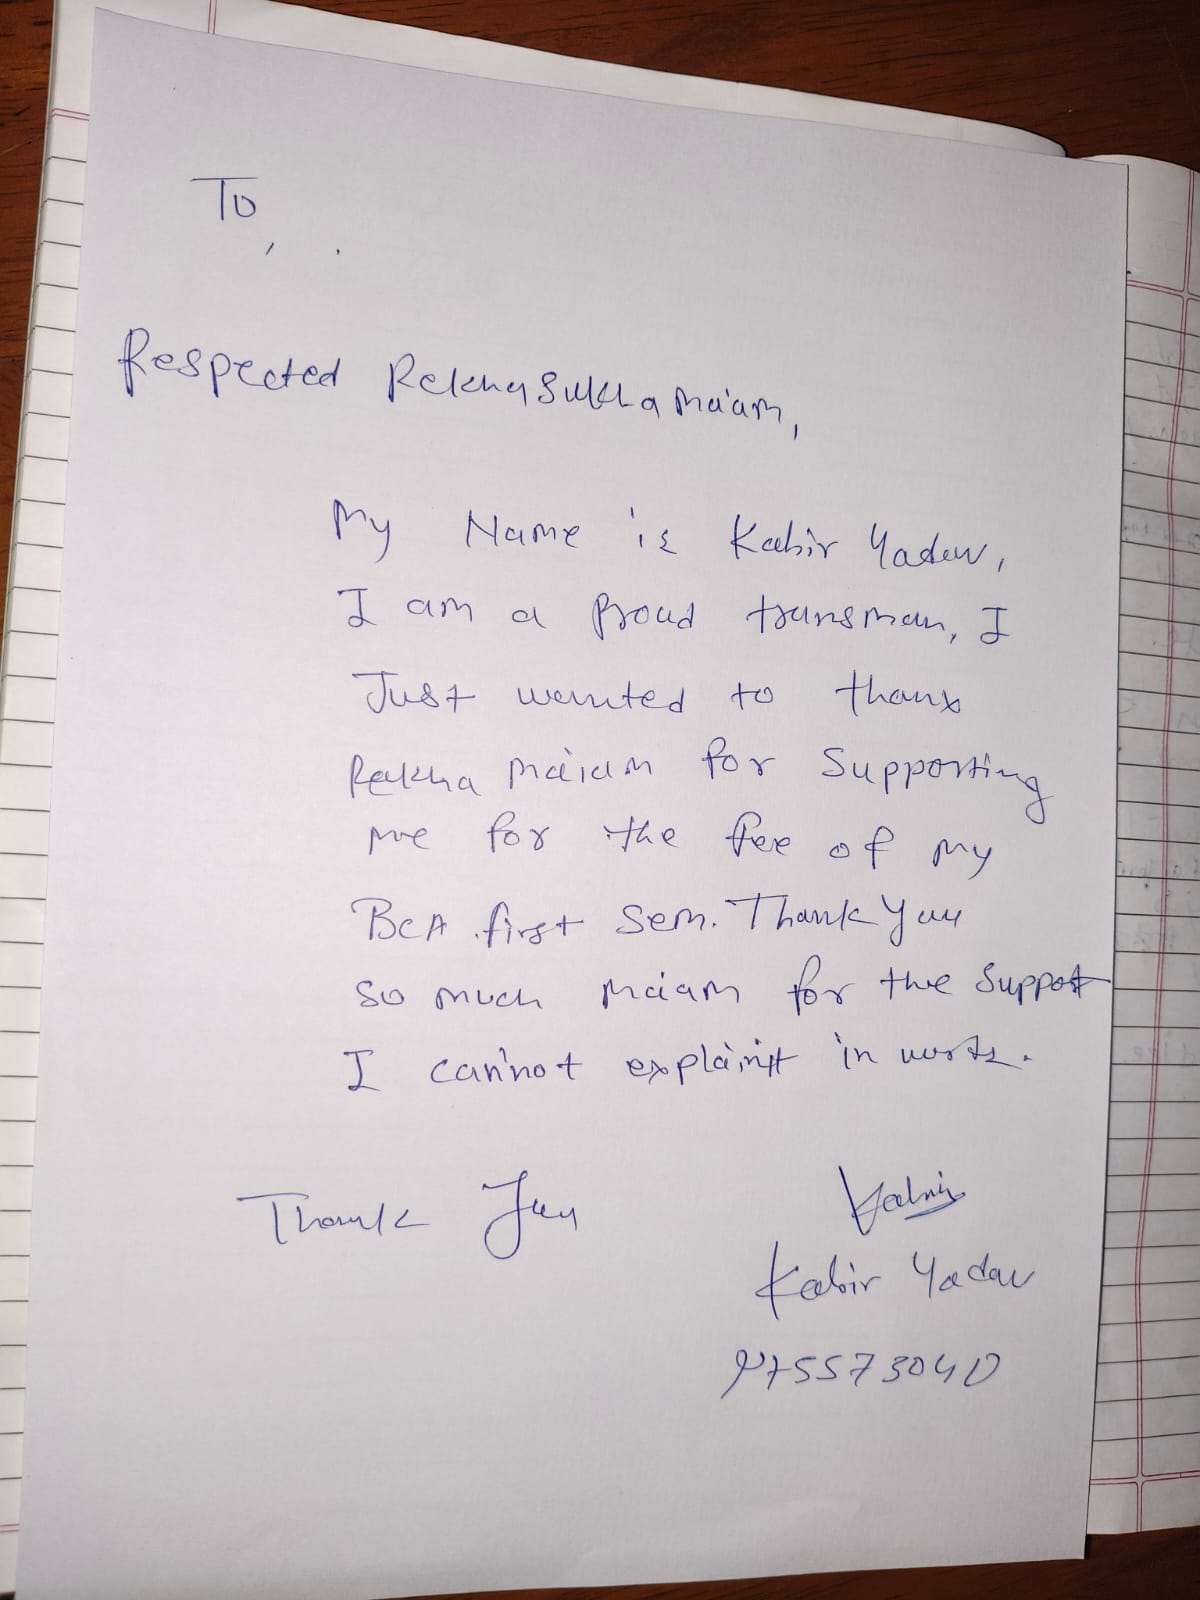 To
,
Respected Rekha Sukha Ma'am,
My Name is Kabir Yadav,
I am a Proud transman, I
Just wanted to thank
Rekha Ma'am for Supporting
me for the fee of my
BCA first Sem. Thank You
So much Ma'am for the Support
I can'not explain it in words.
Thank You
Kabir
Kabir Yadav
9755573040